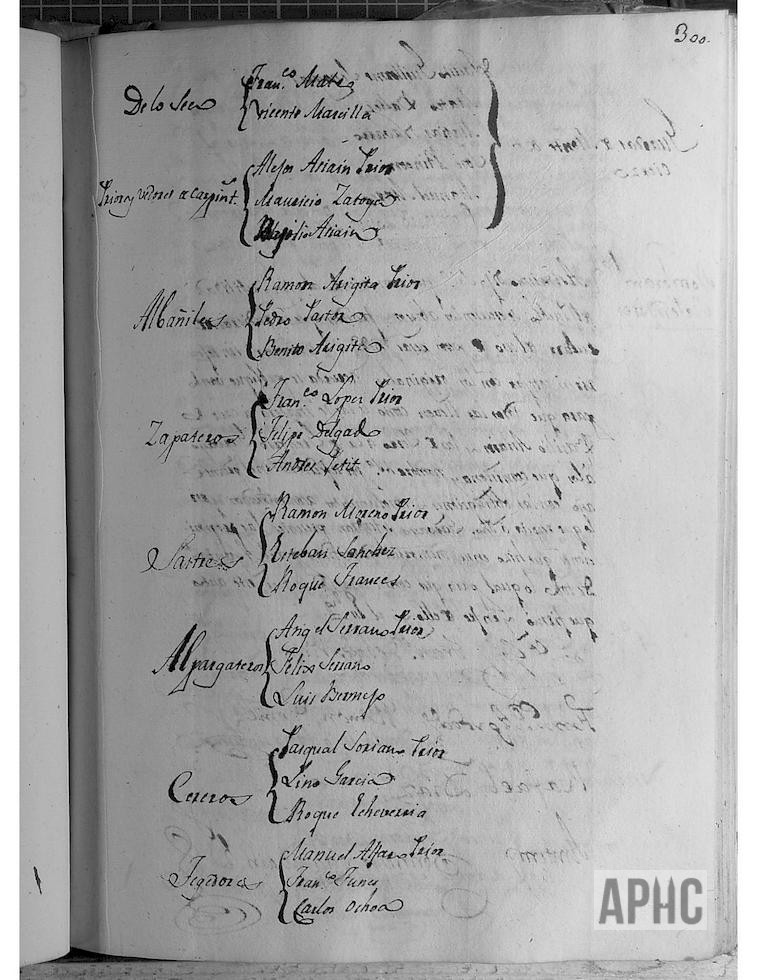 300.
De lo Seco
Fran.co Mateo
Vicente Marcilla
Prior y Vedores a Carpint.
Alejos Ariain Prior
Mauricio Zatoya
Ariain
Albañiles
Ramon Arigita Prior
Pedro Pastor
Benito Arigita
Zapateros
Fran.co Lopez Prior
Felipe Delgado
Andres Petit
Sastres
Ramon Moreno Prior
Esteban Sanchez
Roque Frances
Alpargateros
Angel Serrano Prior
Felix Serrano
Luis Bermejo
Cereros
Pasqual Soriano Prior
Lino Garcia
Roque Echeverria
Tegedores
Manuel Alfaro Prior
Fran.co Funes
Carlos Ochoa
APHC